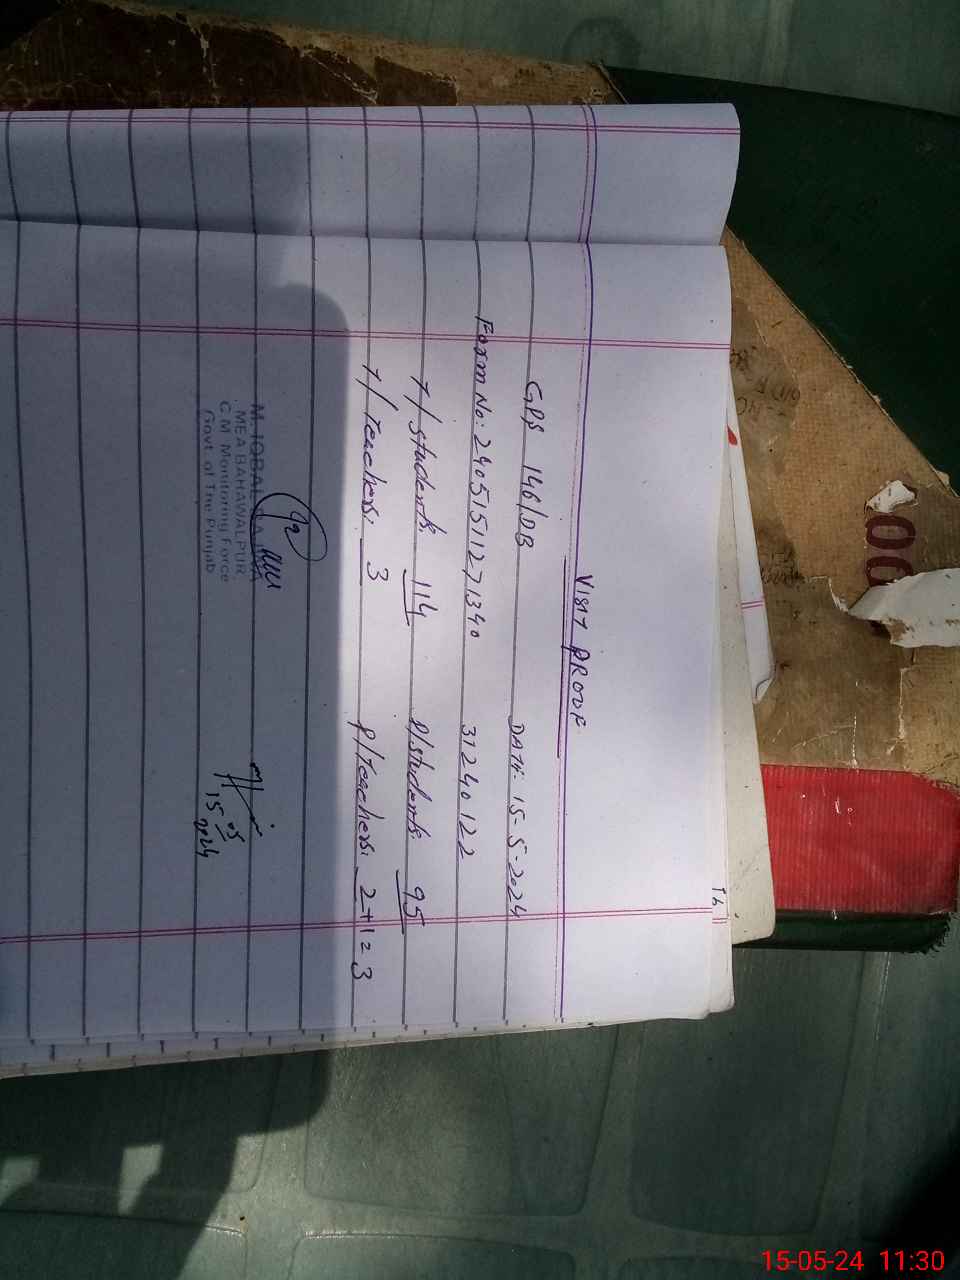 VISIT PROOF
GPS 146/DB DATE: 15-5-2024
Form No: 24051511271340 3124012 2
T/students 114 P/students 95
T/Teachers 3 P/Teachers. 2+1=3
M. IQBAL
MEA BAHAWALPUR
C.M. Monitoring Force
Govt. of The Punjab
15 05 2024
15-05-24 11:30